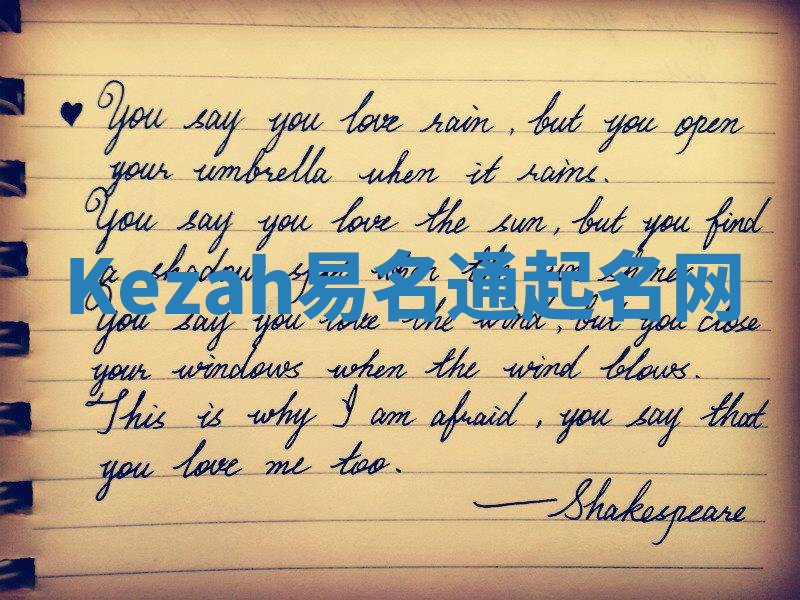 You say you love rain, but you open
your umbrella when it rains.
You say you love the sun, but you find
a shadow spot when the sun shines.
Kezah易名通起名网
You say you love the wind, but you close
your windows when the wind blows.
This is why I am afraid, you say that
you love me too.
—Shakespeare